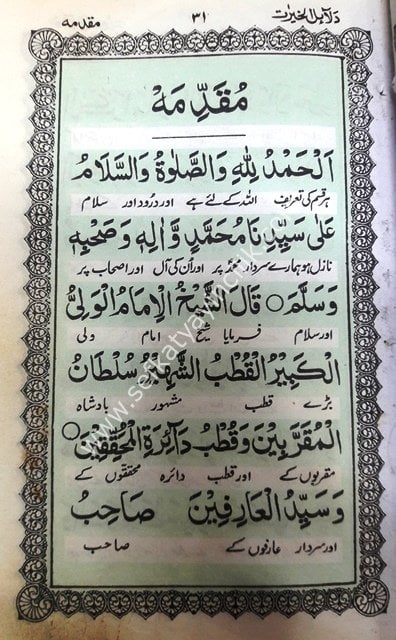 دلائل الخیرات ۳۱ مقدمه
مُقَدِّمَه
اَلْحَمْدُ لِلّٰهِ وَالصَّلٰوةُ وَالسَّلَامُ
ہر قسم کی تعریف اللہ کے لئے ہے اور درود اور سلام
عَلٰى سَيِّدِنَا مُحَمَّدٍ وَّاٰلِهٖ وَصَحْبِهٖ
نازل ہو ہمارے سردار محمد پر اور اُن کی آل اور اصحاب پر
وَسَلَّمَ ○ قَالَ الشَّيْخُ الْاِمَامُ الْوَلِيُّ
اور سلام فرمایا شیخ امام ولی
الْكَبِيْرُ الْقُطْبُ الشَّهِيْرُ سُلْطَانُ
بڑے قطب مشہور بادشاہ
الْمُقَرَّبِيْنَ وَقُطْبُ دَآئِرَةِ الْمُحَقِّقِيْنَ ○
مقربوں کے اور قطب دائرہ محققوں کے
وَسَيِّدُ الْعَارِفِيْنَ صَاحِبُ
اور سردار عارفوں کے صاحب